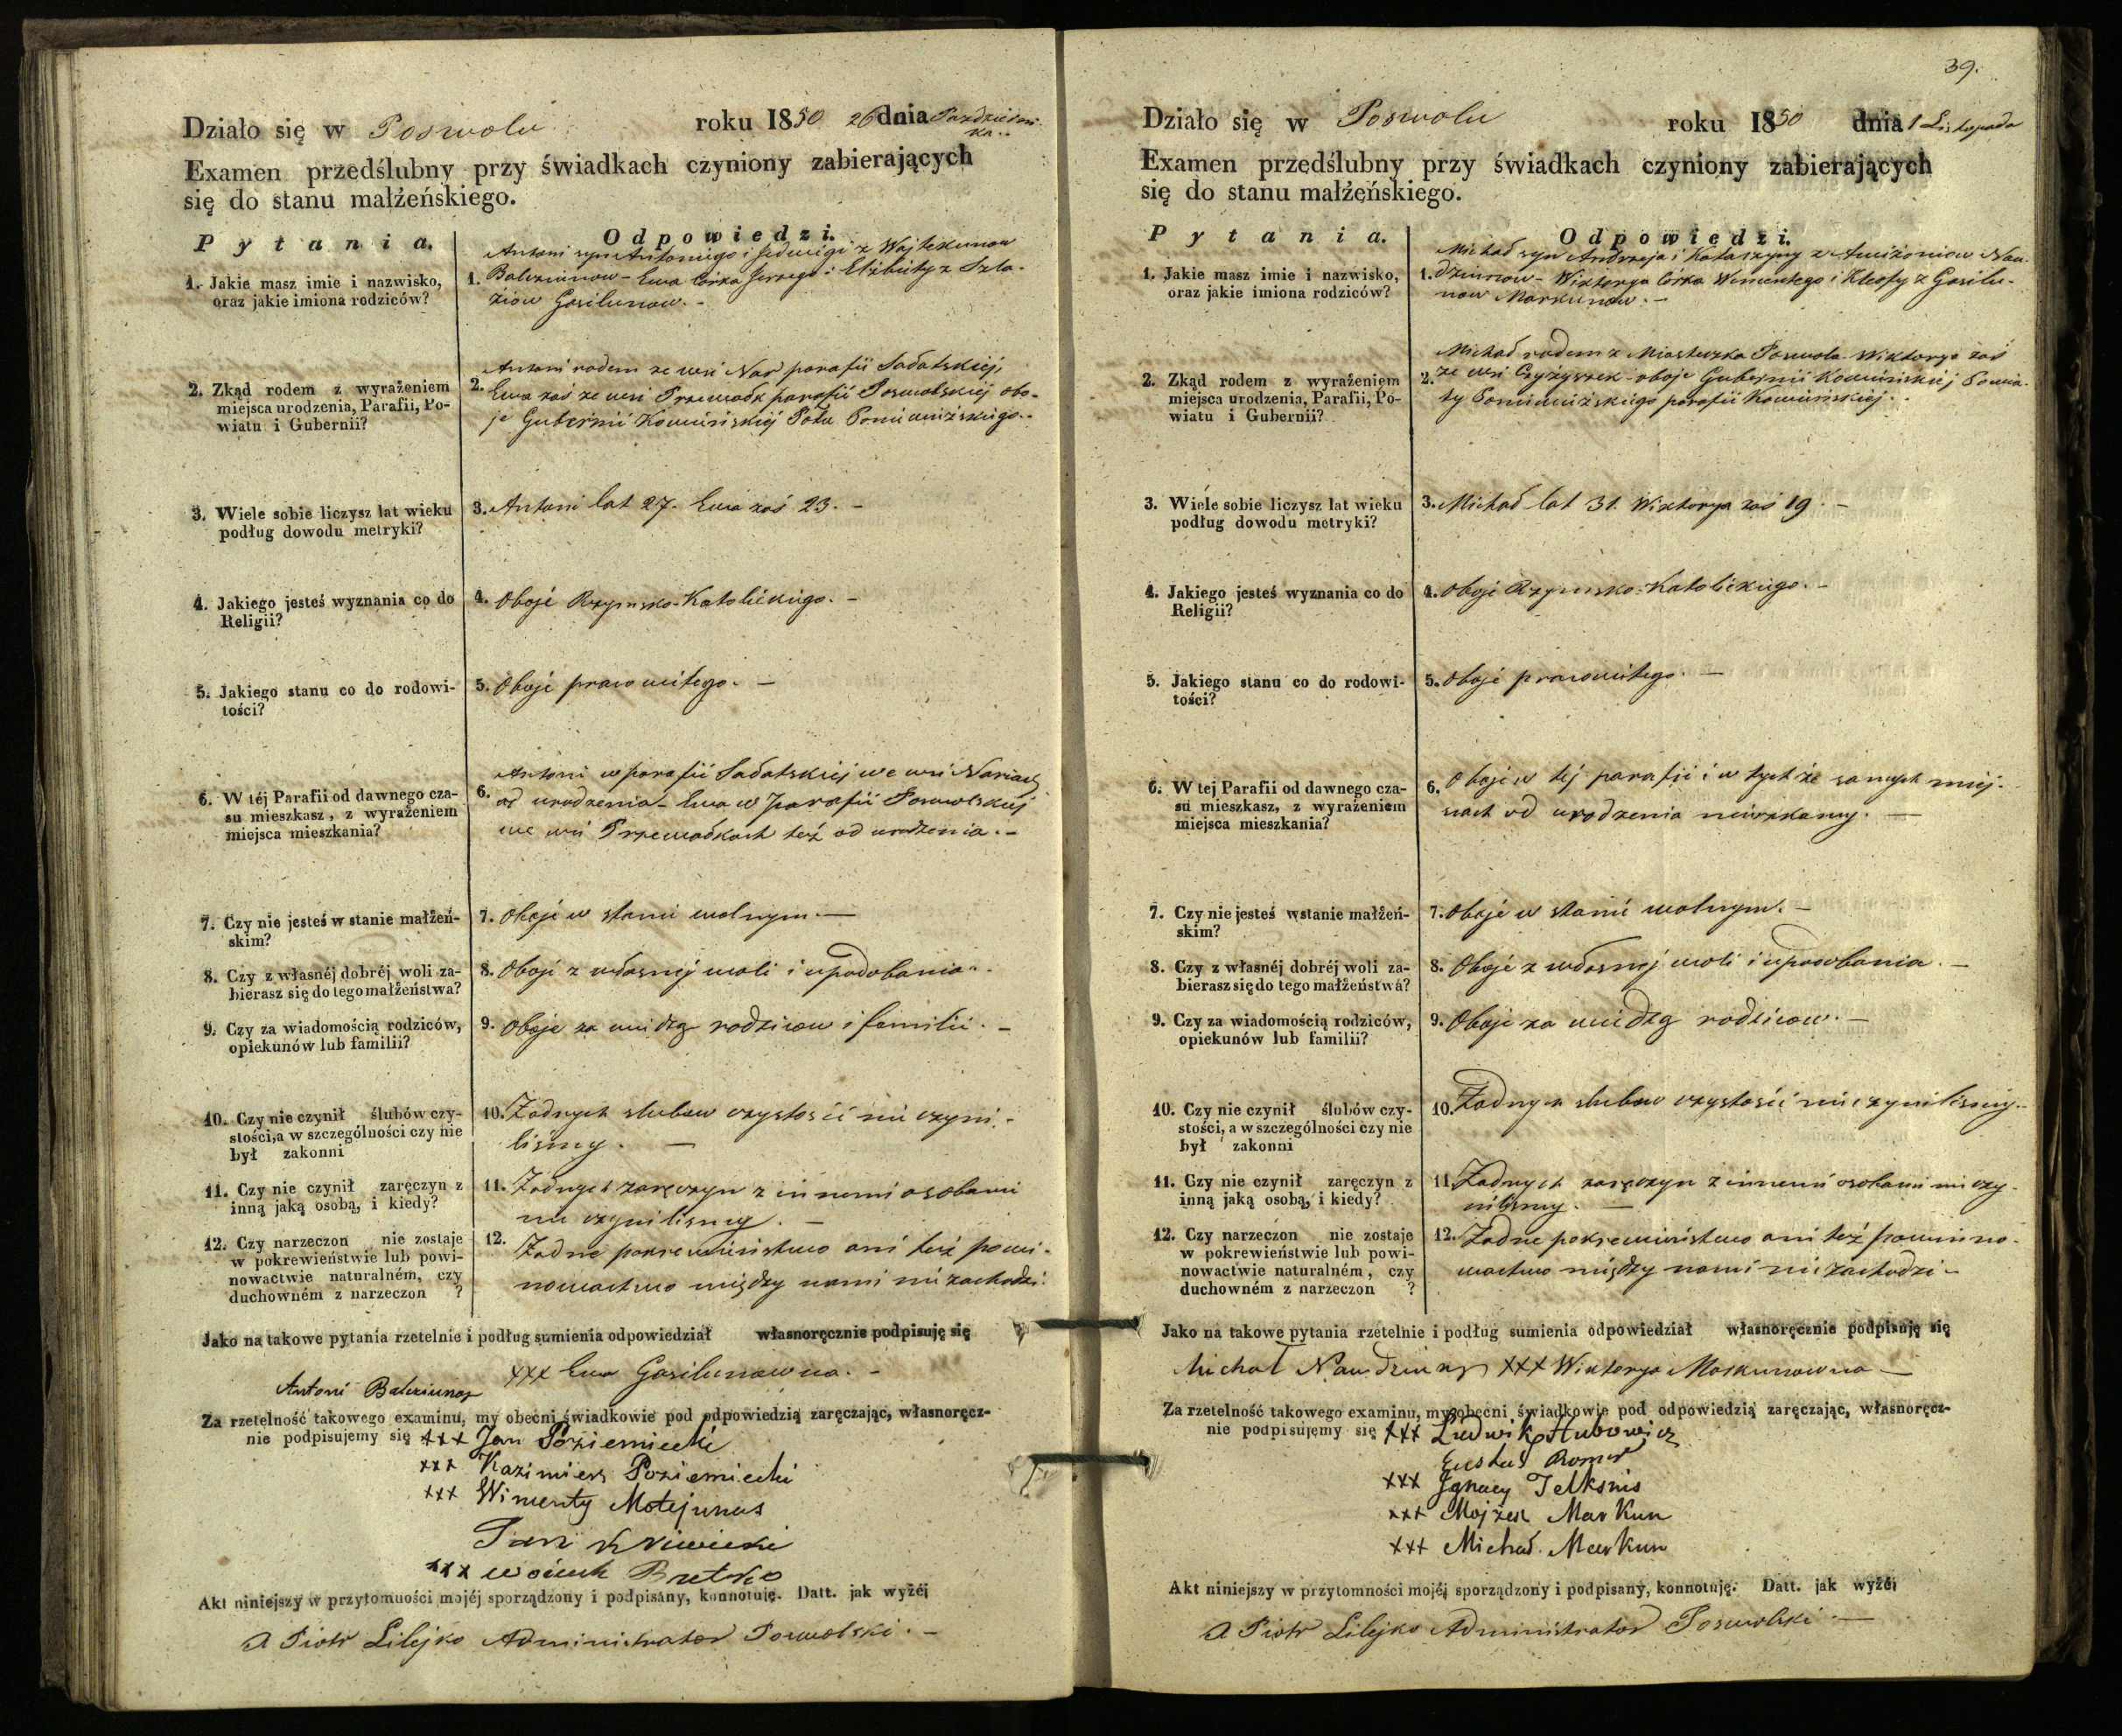 Działo się w Poswolu roku 1850 26 dnia Pazdzierni-
ka..
Examen przedślubny przy świadkach czyniony zabierających
się do stanu małżeńskiego.
Pytania.
Odpowiedzi.
1. Jakie masz imie i nazwisko,
oraz jakie imiona rodziców?
Antoni syn Antoniego i Jedwigi z Wojtekunow
1. Balcziunow - Ewa Córka Jerzego i Elżbiety z Szla-
ziow Gasilunow. -
2. Zkąd rodem z wyrażeniem
miejsca urodzenia, Parafii, Po-
wiatu i Gubernii?
Antoni rodem ze wsi Nar parafii Sałatskiej,
2. Ewa zaś ze wsi Przewałk parafii Poswolskiej obo-
je Gubernii Kowieńskiej Pttu Poniewiżskiego..
3. Wiele sobie liczysz lat wieku
podług dowodu metryki?
3. Antoni lat 27. Ewa zaś 23. -
4. Jakiego jesteś wyznania co do
Religii?
4. Oboje Rzymsko-Katolickiego. -
5. Jakiego stanu co do rodowi-
tości?
5. Oboje prawowitego. -
6. W téj Parafii od dawnego cza-
su mieszkasz, z wyrażeniem
miejsca mieszkania?
Antoni w parafii Sałatskiej we wsi Nariach
6. od urodzenia - Ewa w parafii Poswolskiej
we wsi Przewałkach też od urodzenia. -
7. Czy nie jesteś w stanie małżeń-
skim?
7. Oboje w stanie wolnym. -
8. Czy z własnéj dobréj woli za-
bierasz się do tego małżeństwa?
8. Oboje z własnej woli i upodobania..
9. Czy za wiadomością rodziców,
opiekunów lub familii?
9. Oboje za wiedzą rodzicow i familii. -
10. Czy nie czynił ślubów czy-
stości, a w szczególności czy nie
był zakonni
10. Żadnych slubow czystości nie czyni-
liśmy. -
11. Czy nie czynił zaręczyn z
inną jaką osobą, i kiedy?
11. Żadnych zaręczyn z innemi osobami
nie czyniliśmy. -
12. Czy narzeczon nie zostaje
w pokrewieństwie lub powi-
nowactwie naturalném, czy
duchowném z narzeczon ?
12. Żadne pokrewieństwo ani też powi-
nowactwo między nami nie zachodzi.
Jako na takowe pytania rzetelnie i podług sumienia odpowiedział własnoręcznie podpisuję się
xxx Ewa Gasilunowna. -
Antoni Balcziunas
Za rzetelność takowego examinu, my obecni świadkowie pod odpowiedzią zaręczając, własnoręcz-
nie podpisujemy się xxx Jan Poziemiecki
xxx Kazimierz Poziemiecki
xxx Wincenty Motejunas
Jan Kriwicki
xxx Woiciech Bretko
Akt niniejszy w przytomności mojéj sporządzony i podpisany, konnotuję. Datt. jak wyżéj
X Piotr Lilejko Administrator Poswolski. -
39.
Działo się w Poswolu roku 1850 dnia 1 Listopada
Examen przedślubny przy świadkach czyniony zabierających
się do stanu małżeńskiego.
Pytania.
Odpowiedzi.
1. Jakie masz imie i nazwisko,
oraz jakie imiona rodziców?
Michał syn Andrzeja i Katarzyny z Nau-
1. dziunow - Wiktorya Córka Wincentego i Kleofy z Gasilu-
now Markunow. -
2. Zkąd rodem z wyrażeniem
miejsca urodzenia, Parafii, Po-
wiatu i Gubernii?
Michał rodem z Miasteczka Poswola. Wiktorya zaś
2. ze wsi Czyżyszek oboje Gubernii Kowieńskiej Powia-
tu Poniewiżskiego parafii Kowieńskiej.
3. Wiele sobie liczysz lat wieku
podług dowodu metryki?
3. Michał lat 31. Wiktorya zaś 19. -
4. Jakiego jesteś wyznania co do
Religii?
4. Oboje Rzymsko-Katolickiego. -
5. Jakiego stanu co do rodowi-
tości?
5. Oboje prawowitego. -
6. W tej Parafii od dawnego cza-
su mieszkasz, z wyrażeniem
miejsca mieszkania?
6. Oboje w tej parafii i w tych że samych miej-
scach od urodzenia mieszkamy. -
7. Czy nie jesteś wstanie małżeń-
skim?
7. Oboje w stanie wolnym. -
8. Czy z własnéj dobréj woli za-
bierasz się do tego małżeństwa?
8. Oboje z własnej woli i upodobania. -
9. Czy za wiadomością rodziców,
opiekunów lub familii?
9. Oboje za wiedzą rodzicow. -
10. Czy nie czynił ślubów czy-
stości, a w szczególności czy nie
był zakonni
10. Żadnych slubow czystości nie czyniliśmy..
11. Czy nie czynił zaręczyn z
inną jaką osobą, i kiedy?
11. Żadnych zaręczyn z innemi osobami nie czy-
niliśmy. -
12. Czy narzeczon nie zostaje
w pokrewieństwie lub powi-
nowactwie naturalném, czy
duchowném z narzeczon ?
12. Żadne pokrewieństwo ani też powino-
wactwo między nami nie zachodzi -
Jako na takowe pytania rzetelnie i podług sumienia odpowiedział własnoręcznie podpisuję się
Michał Naudziunas xxx Wiktorya Markunowna -
Za rzetelność takowego examinu, my obecni świadkowie pod odpowiedzią zaręczając, własnoręcz-
nie podpisujemy się xxx Ludwik Hubowicz
Romer
xxx Ignacy Telksnis
xxx Mojżesz Markun
xxx Michał Markun
Akt niniejszy w przytomności mojéj sporządzony i podpisany, konnotuję. Datt. jak wyżéj
X Piotr Lilejko Administrator Poswolski -